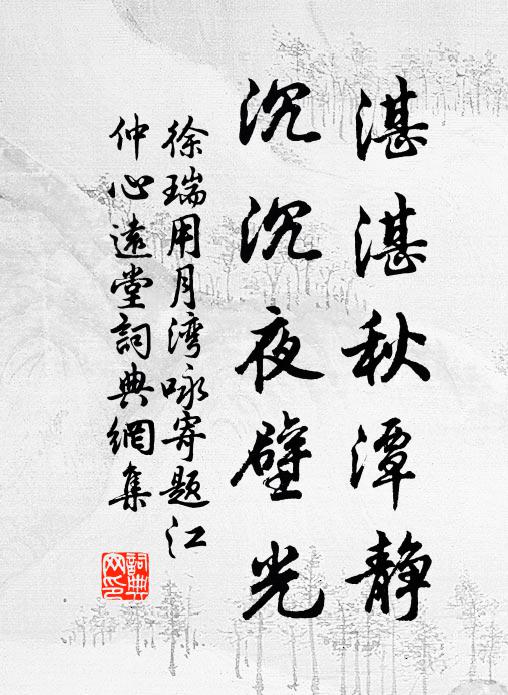 湛湛秋潭静
沉沉夜壁光
徐瑞用月湾咏寄题江
仲心远堂詞典網集
詞典網印